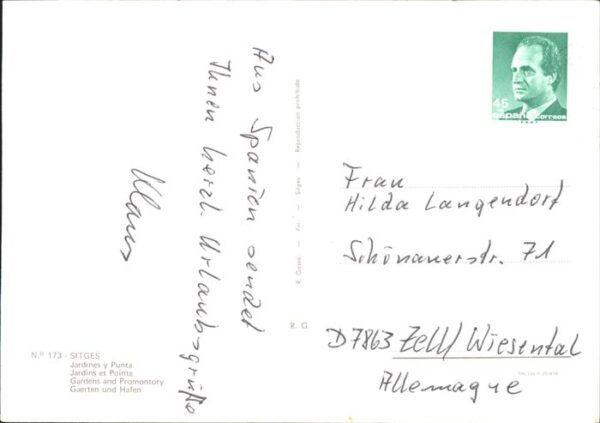 Aus Spanien sendet
Ihnen herzl. Urlaubsgrüße
Klaus
45
españa correos
Frau
Hilda Langendorf
Schönauerstr. 71
D7863 Zell/Wiesental
Allemagne
R. G.
Sitges - Reproduction prohibida
N.º 173 - SITGES
Jardines y Punta
Jardins et Pointe
Gardens and Promontory
Gaerten und Hafen